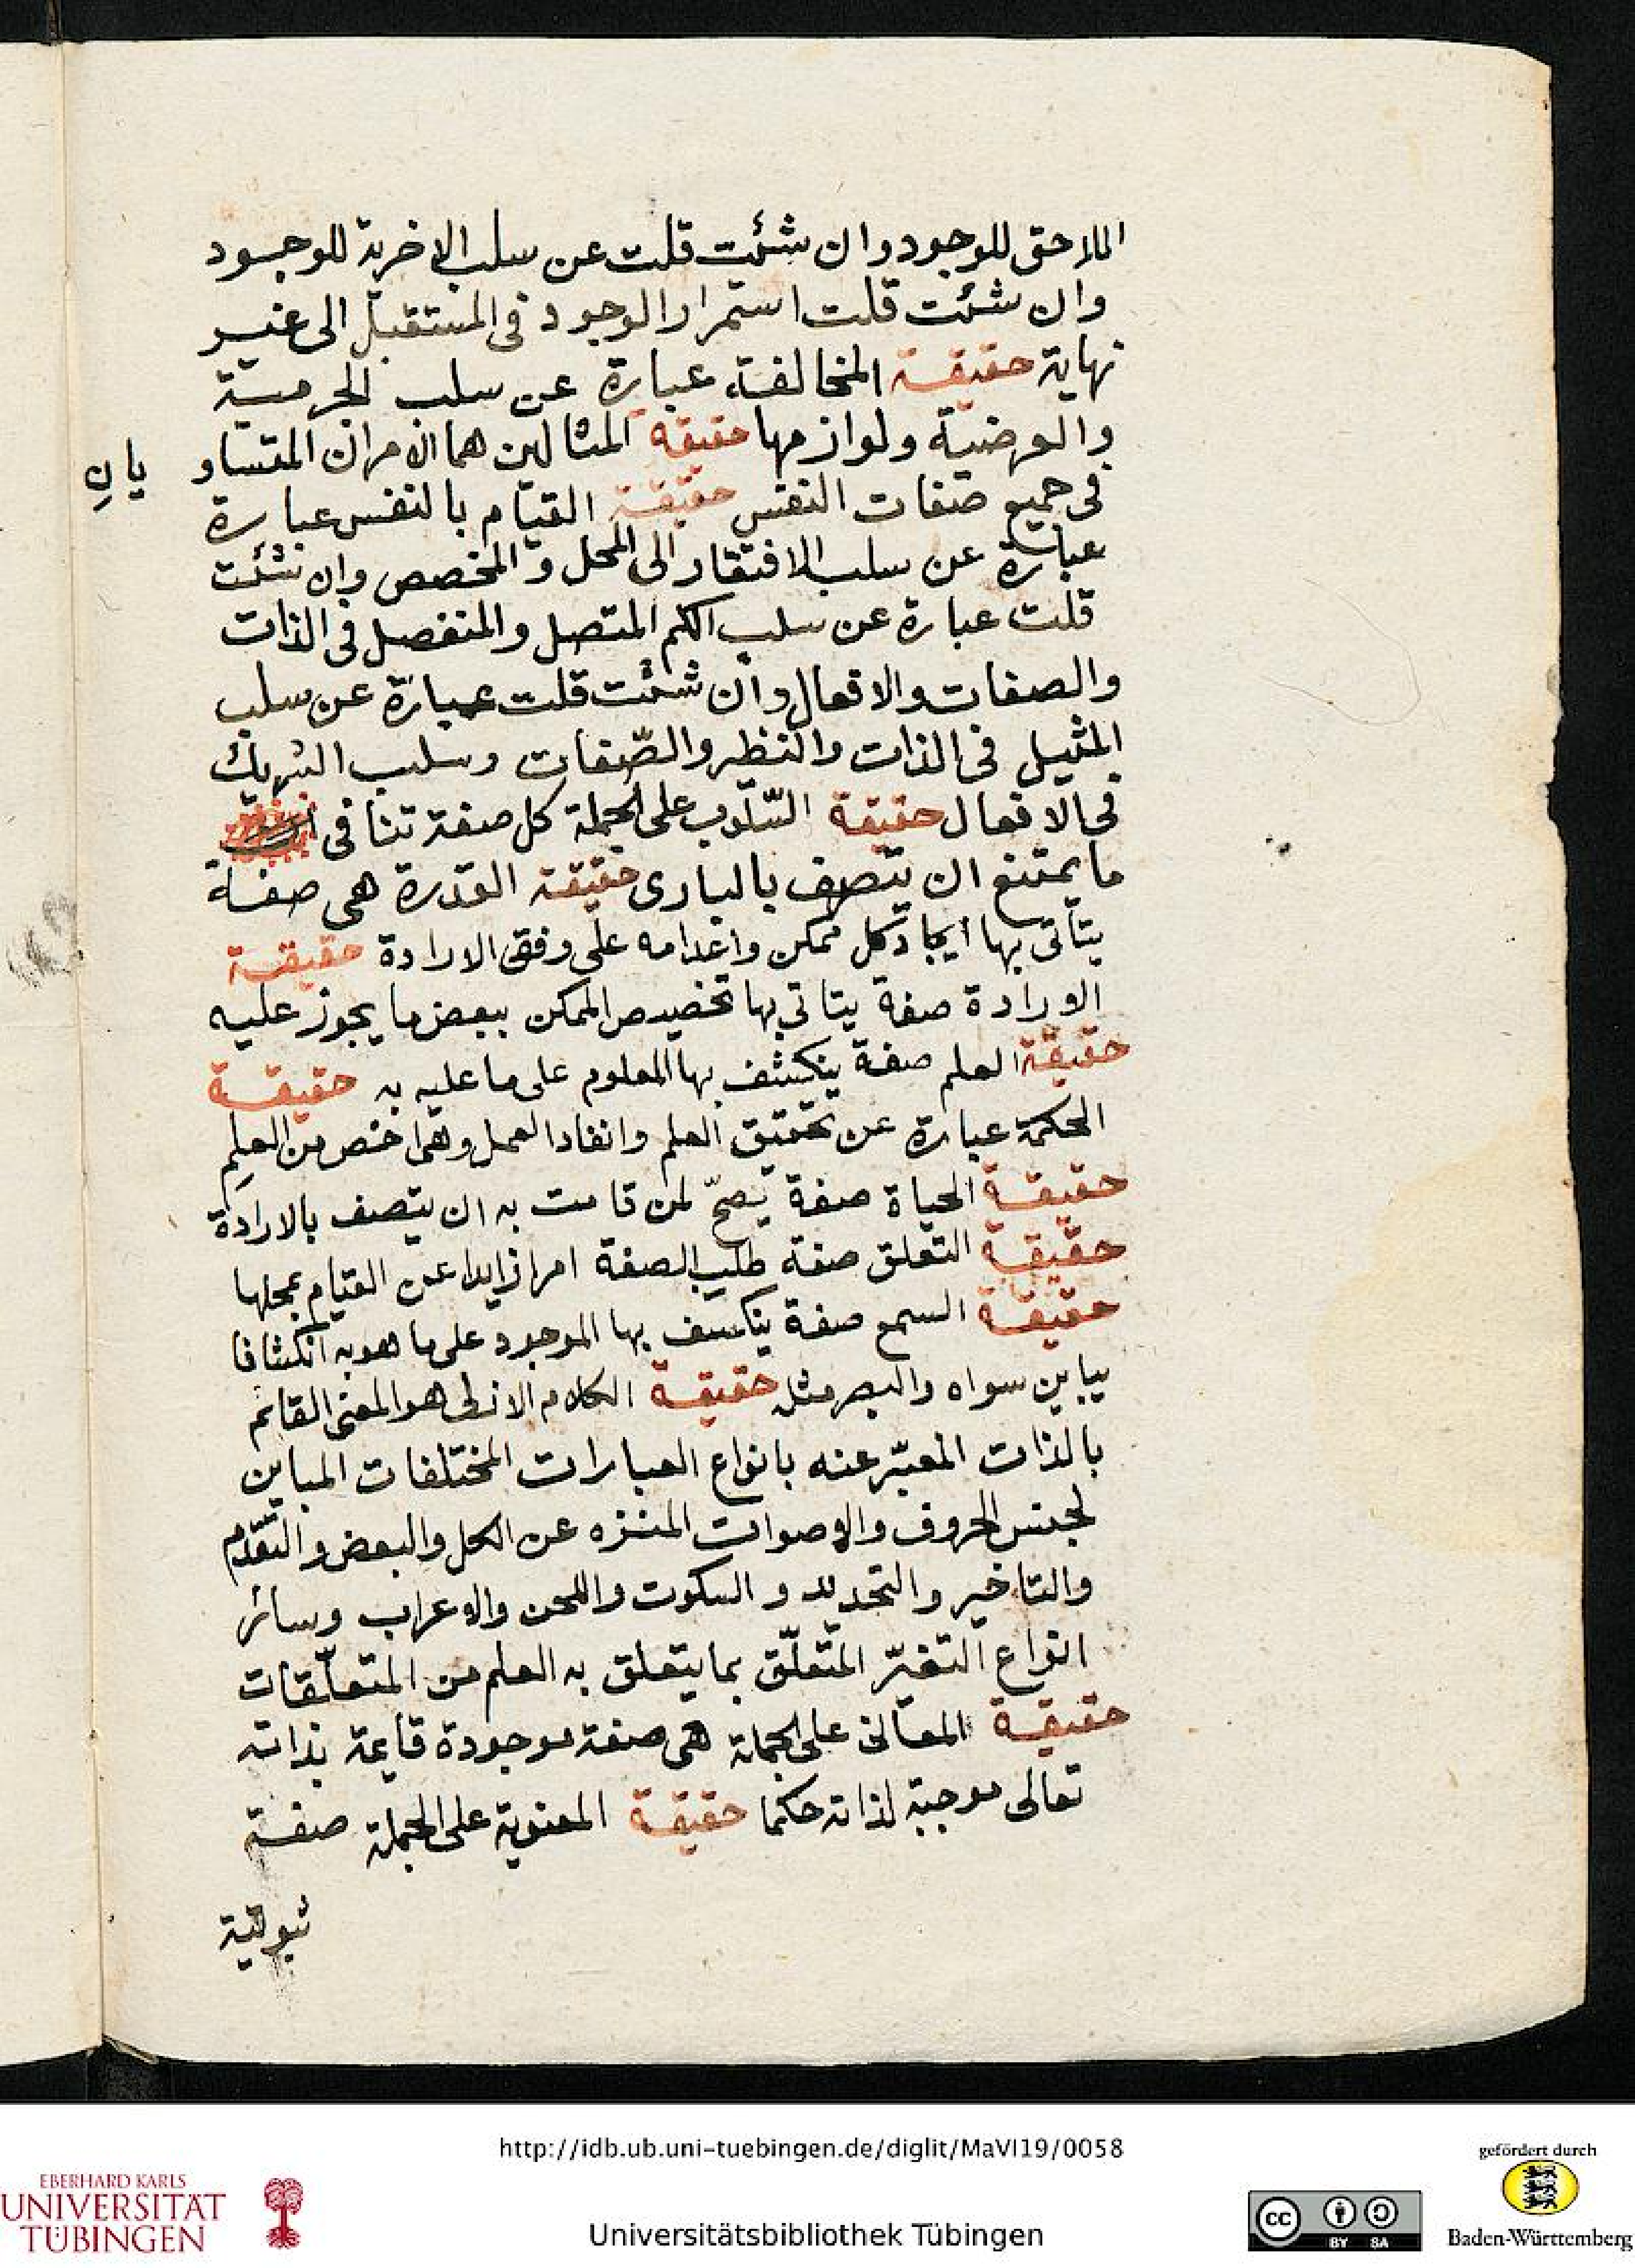 اللاحق للوجود وان شئت قلت عن سلب الاخرية للوجود
وان شئت قلت استمرار الوجود فى المستقبل الى غير
نهاية حقيقة المخالفة عبارة عن سلب الجرمية
والعرضية ولوازمها حقيقة المثالين هما الامران المتساو
يان
فى جميع صفات النفس حقيقة القيام بالنفس عبارة
عبارة عن سلب الافتقار الى المحل و المخصص وان شئت
قلت عبارة عن سلب الكم المتصل والمنفصل فى الذات
والصفات والافعال وان شئت قلت عبارة عن سلب
المثيل فى الذات والنظر والصفات وسلب الشريك
فى الافعال حقيقة السّلوب على الجملة كل صفة تنافى
ما يمتنع ان يتصف بالبارى حقيقة القدرة هى صفة
يتأتى بها ايجاد كل ممكن واعدامه على وفق الارادة حقيقة
الارادة صفة يتاتي بها تخصيص الممكن ببعض ما يجوز عليه
حقيقة العلم صفة ينكشف بها المعلوم على ما عليه به حقيقة
الحكمة عبارة عن تحقيق العلم وانفاد العمل وهى اخص من العلم
حقيقة الحياة صفة تصحّ لمن قامت به ان يتصف بالارادة
حقيقة التعلق صفة طلب الصفة امرا زايدا عن القيام بمحلها
حقيقة السمع صفة ينكسف بها الموجود على ما هو به انكشافا
يباين سواه والبصر مثل حقيقة الكلام الازلى هو المعنى القائم
بالذات المعبّر عنه بانواع العبارات المختلفات المباين
لجنس الحروف والاصوات المنزه عن الكل والبعض والتقدّم
والتاخير والتجديد و السكوت واللحن والاعراب وسائر
انواع التغيّر المتعلّق بما يتعلق به العلم من المتعلّقات
حقيقة المعانى على الجملة هى صفة موجودة قايمة بذاته
تعالى موجبة لذاته حكما حقيقة المعنوية على الجملة صفة
ثبوتية
http://idb.ub.uni-tuebingen.de/diglit/MaVI19/0058
Universitätsbibliothek Tübingen
EBERHARD KARLS
UNIVERSITÄT
TÜBINGEN
cc
BY SA
gefördert durch
Baden-Württemberg